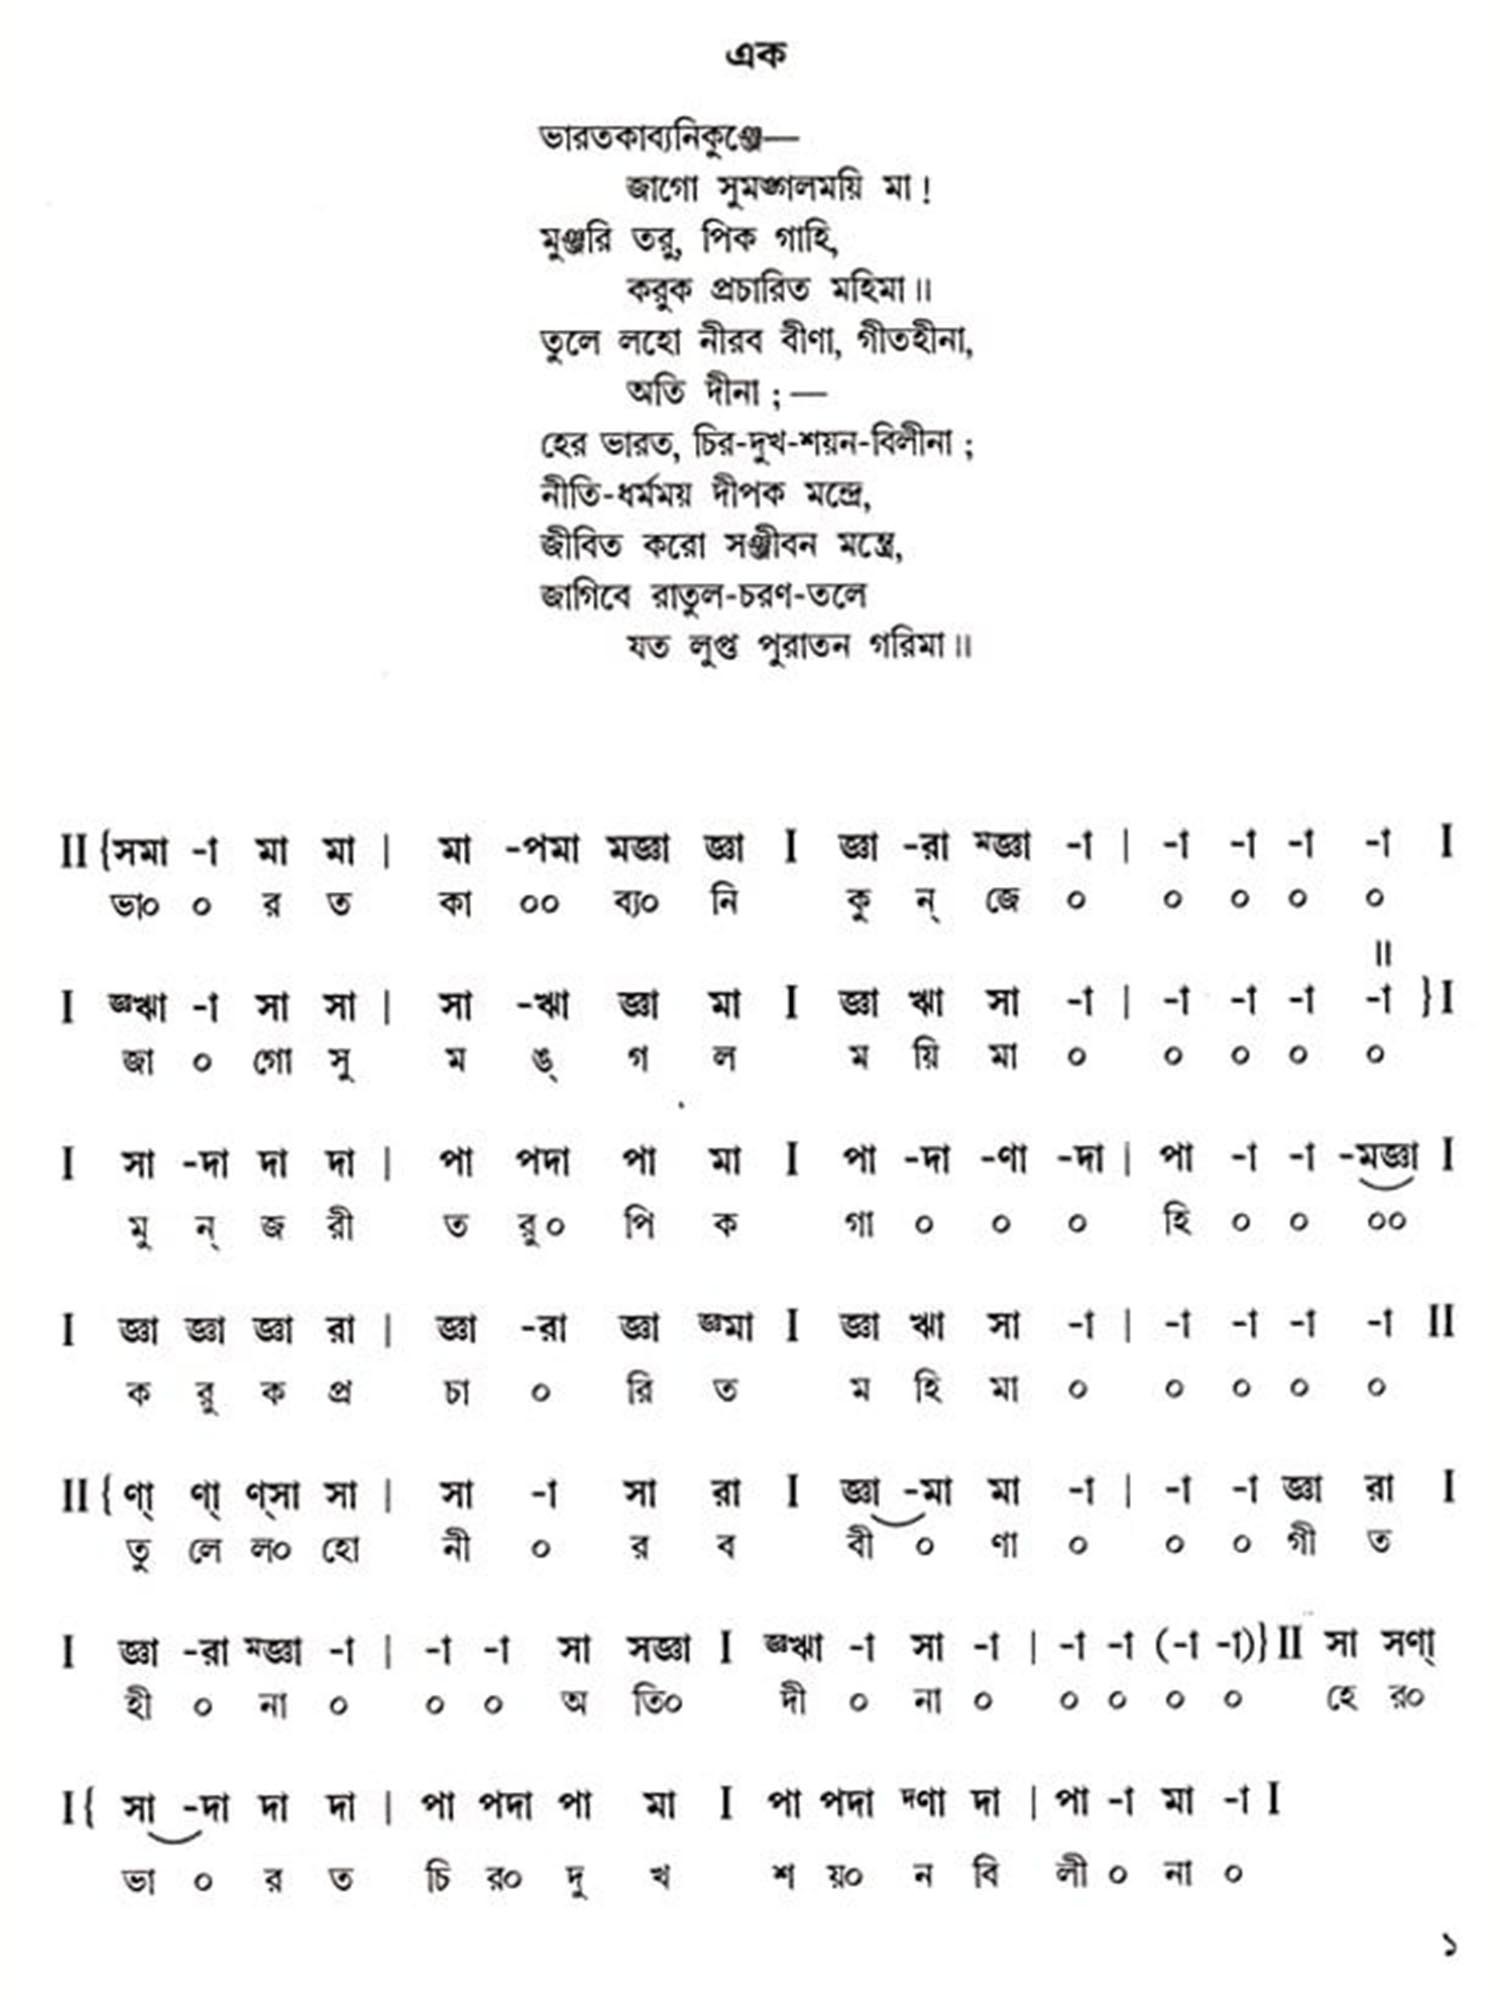 এক
ভারতকাব্যনিকুঞ্জে—
জাগো সুমঙ্গলময়ি মা !
মুঞ্জরি তরু, পিক গাহি,
করুক প্রচারিত মহিমা॥
তুলে লহো নীরব বীণা, গীতহীনা,
অতি দীনা ; —
হের ভারত, চির-দুখ-শয়ন-বিলীনা ;
নীতি-ধর্মময় দীপক মন্দ্রে,
জীবিত করো সঞ্জীবন মন্ত্রে,
জাগিবে রাতুল-চরণ-তলে
যত লুপ্ত পুরাতন গরিমা॥
II {সমা -া মা মা | মা -পমা মজ্ঞা জ্ঞা I জ্ঞা -রা মজ্ঞা -া | -া -া -া -া I
ভা০ ০ র ত কা ০০ ব্য০ নি কু ন্ জে ০ ০ ০ ০ ০
॥
I জ্ঞঋা -া সা সা | সা -ঋা জ্ঞা মা I জ্ঞা ঋা সা -া | -া -া -া -া }I
জা ০ গো সু ম ঙ্ গ ল ম য়ি মা ০ ০ ০ ০ ০
I সা -দা দা দা | পা পদা পা মা I পা -দা -ণা -দা | পা -া -া -মজ্ঞা I
মু ন্ জ রী ত রু০ পি ক গা ০ ০ ০ হি ০ ০ ০০
I জ্ঞা জ্ঞা জ্ঞা রা | জ্ঞা -রা জ্ঞা জ্ঞমা I জ্ঞা ঋা সা -া | -া -া -া -া II
ক রু ক প্র চা ০ রি ত ম হি মা ০ ০ ০ ০ ০
II { ণা্ ণা্ ণ্সা সা | সা -া সা রা I জ্ঞা -মা মা -া | -া -া জ্ঞা রা I
তু লে ল০ হো নী ০ র ব বী ০ ণা ০ ০ ০ গী ত
I জ্ঞা -রা মজ্ঞা -া | -া -া সা সজ্ঞা I জ্ঞঋা -া সা -া | -া -া (-া -া)} II সা সণা্
হী ০ না ০ ০ ০ অ তি০ দী ০ না ০ ০ ০ ০ ০ হে র০
I { সা -দা দা দা | পা পদা পা মা I পা পদা দণা দা | পা -া মা -া I
ভা ০ র ত চি র০ দু খ শ য়০ ন বি লী ০ না ০
১